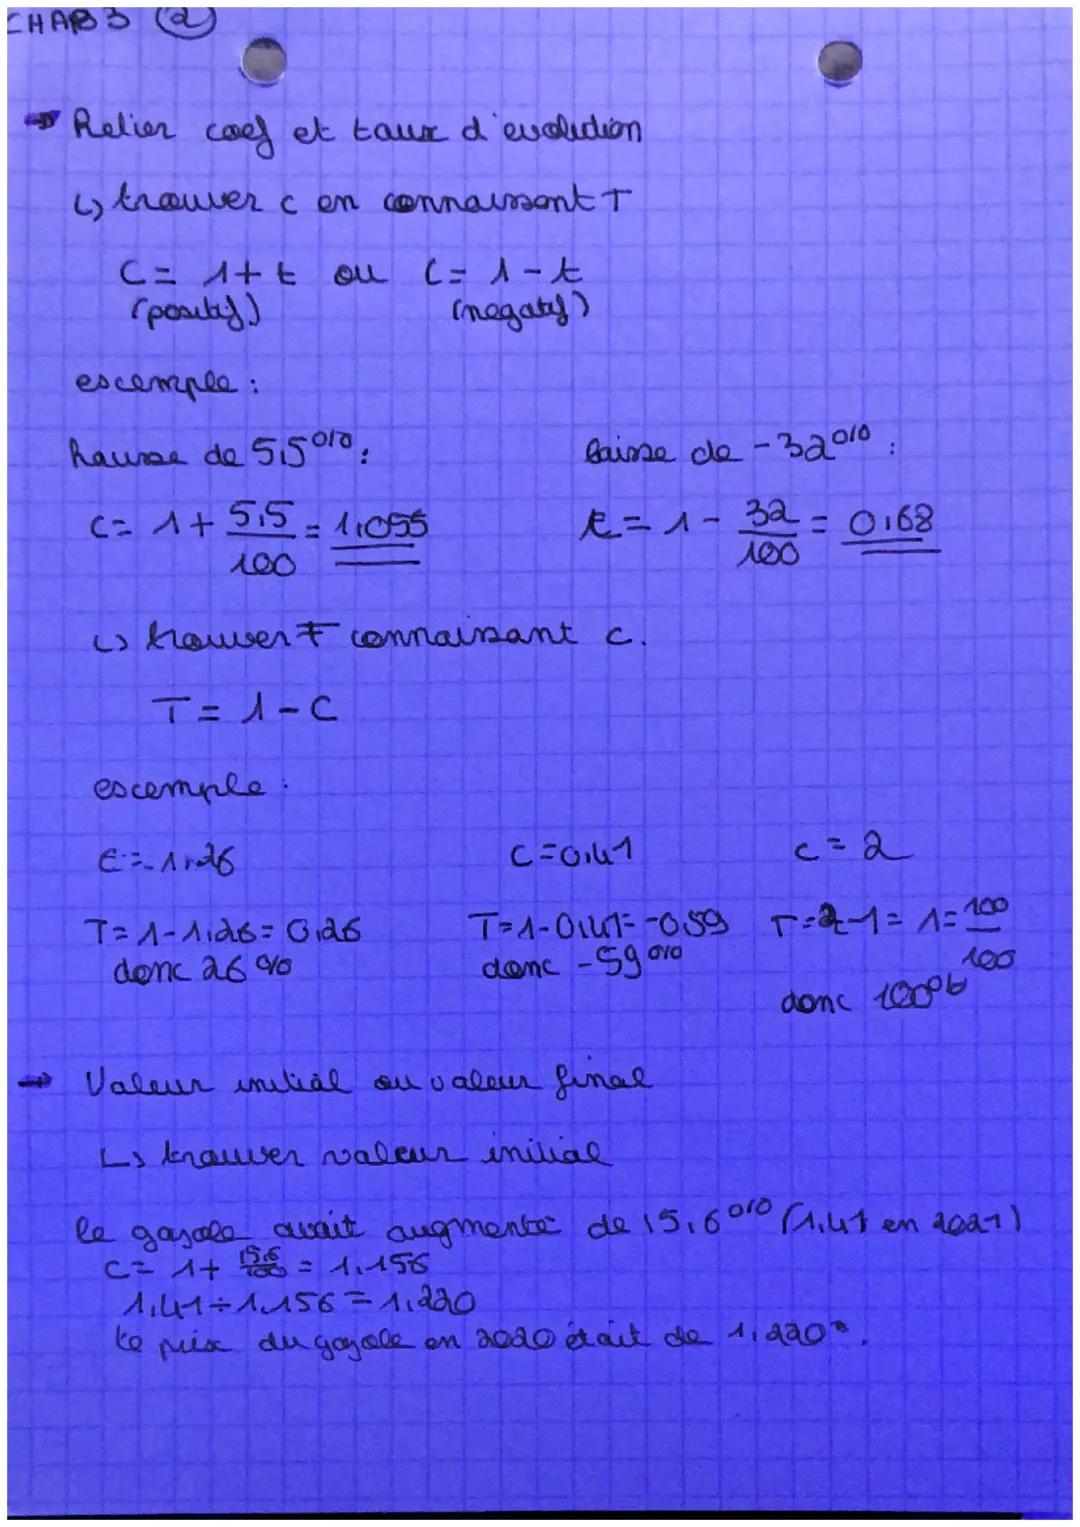 CHAP3 2
→ Relier coef et taux d'evolution
↳ trouver c en connaissant T
C= 1+t ou C= 1-t
(positif) (negatif)
escemple :
hausse de 5,5% : baisse de -32% :
C= 1+ 5,5/100 = 1,055 C= 1- 32/100 = 0,68
↳ trouver T connaissant c.
T= 1-C
escemple :
C= 1,26 C=0,41 c=2
T=1-1,26= 0,26 T=1-0,41= -0,59 T=2-1= 1= 100/100
donc 26% donc -59% donc 100%
→ Valeur initial ou valeur final
↳ trouver valeur initial
le gazole avait augmenté de 15,6% (1,41 en 2021)
C= 1+ 15,6/100 = 1,156
1,41÷1,156=1,220
Le prix du gazole en 2020 était de 1,220€.